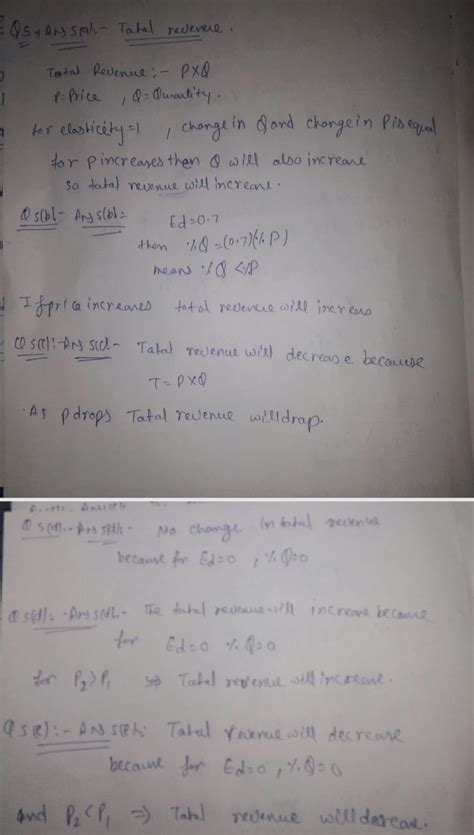 Q5,Ans5(a):- Tatal revenue.
Total Revenue:- P×Q
P=Price , Q=Quantity.
for elasticity=1 , change in Q and change in P is equal
for P increases then Q will also increase
so tatal revenue will increase.
Q5(b):- Ans5(b):- Ed=0.7
then %Q=(0.7)(%P)
means %Q<%P
If price increases total revenue will increas
Q5(c):-Ans5(c):- Tatal revenue will decrease because
T=P×Q
As P drops Tatal revenue will drap.
Ans5(d):- No change in tatal revenue
because for Ed=0 , %Q=0
Q5(d):-Ans5(d):- The tatal revenue will increase because
for Ed=0 %Q=0
for P2>P1 ⇒ Tatal revenue will increase.
Q5(e):-Ans5(e): Tatal revenue will decrease
because for Ed=0, %Q=0
and P2<P1 ⇒ Tatal revenue will decrease.